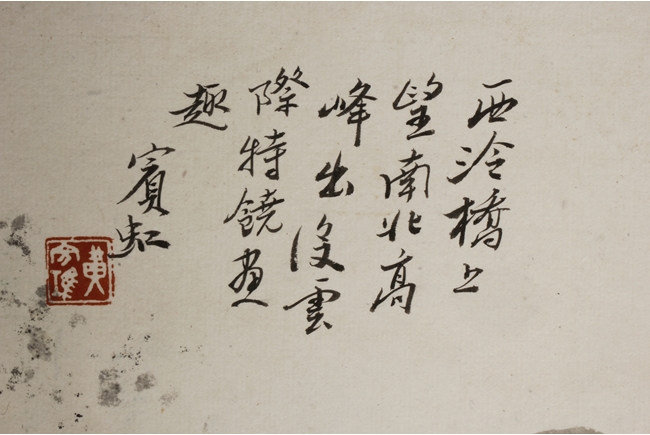 西泠橋上
望南北高
峰出沒雲
際特饒畫
趣
賓虹
黃